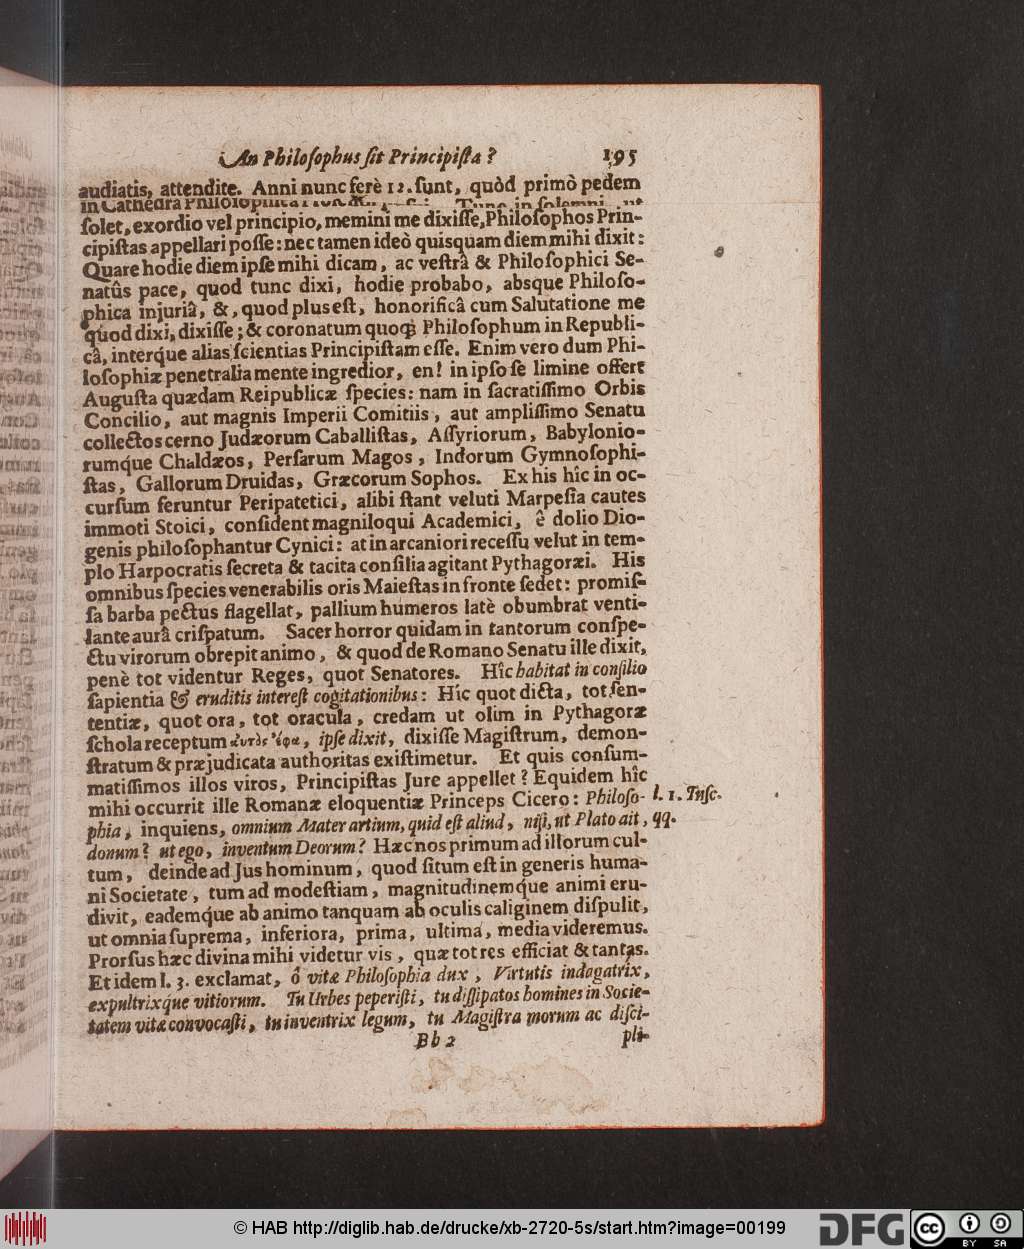 An Philosophus sit Principista? 195
audiatis, attendite. Anni nunc ferè 12. sunt, quòd primò pedem
in Cathedra Philosophica Tunc in solemni, ut
solet, exordio vel principio, memini me dixisse, Philosophos Prin-
cipistas appellari posse: nec tamen ideò quisquam diem mihi dixit:
Quare hodie diem ipse mihi dicam, ac vestrâ & Philosophici Se-
natûs pace, quod tunc dixi, hodie probabo, absque Philoso-
phica injuriâ, &, quod plus est, honorificâ cum Salutatione me
quod dixi, dixisse; & coronatum quoq; Philosophum in Republi-
câ, interq́ue alias scientias Principistam esse. Enim vero dum Phi-
losophiæ penetralia mente ingredior, en! in ipso se limine offert
Augusta quædam Reipublicæ species: nam in sacratissimo Orbis
Concilio, aut magnis Imperii Comitiis, aut amplissimo Senatu
collectos cerno Judæorum Caballistas, Assyriorum, Babylonio-
rumq́ue Chaldæos, Persarum Magos, Indorum Gymnosophi-
stas, Gallorum Druidas, Græcorum Sophos. Ex his hîc in oc-
cursum feruntur Peripatetici, alibi stant veluti Marpesia cautes
immoti Stoici, consident magniloqui Academici, ê dolio Dio-
genis philosophantur Cynici: at in arcaniori recessu velut in tem-
plo Harpocratis secreta & tacita consilia agitant Pythagoræi. His
omnibus species venerabilis oris Maiestas in fronte sedet: promis-
sa barba pectus flagellat, pallium humeros latè obumbrat venti-
lante aurâ crispatum. Sacer horror quidam in tantorum conspe-
ctu virorum obrepit animo, & quod de Romano Senatu ille dixit,
penè tot videntur Reges, quot Senatores. Hîc habitat in consilio
sapientia & eruditis interest cogitationibus: Hîc quot dicta, tot sen-
tentiæ, quot ora, tot oracula, credam ut olim in Pythagoræ
schola receptum αὐτὸς ἔφα, ipse dixit, dixisse Magistrum, demon-
stratum & præjudicata authoritas existimetur. Et quis consum-
matissimos illos viros, Principistas Jure appellet? Equidem hîc
mihi occurrit ille Romanæ eloquentiæ Princeps Cicero: Philoso- l. 1. Tusc.
phia, inquiens, omnium Mater artium, quid est aliud, nisi, ut Plato ait, qq.
donum? ut ego, inventum Deorum? Hæc nos primum ad illorum cul-
tum, deinde ad Jus hominum, quod situm est in generis huma-
ni Societate, tum ad modestiam, magnitudinemq́ue animi eru-
divit, eademq́ue ab animo tanquam ab oculis caliginem dispulit,
ut omnia suprema, inferiora, prima, ultima, media videremus.
Prorsus hæc divina mihi videtur vis, quæ tot res efficiat & tantas.
Et idem l. 3. exclamat, ô vitæ Philosophia dux, Virtutis indagatrix,
expultrixq́ue vitiorum. Tu Urbes peperisti, tu dissipatos homines in Socie-
tatem vitæ convocasti, tu inventrix legum, tu Magistra morum ac disci-
Bb 2 pli-
© HAB http://diglib.hab.de/drucke/xb-2720-5s/start.htm?image=00199
DFG
cc BY SA